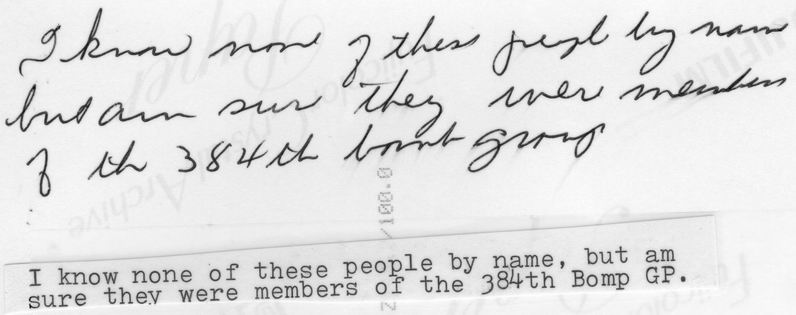 I know none of these people by name
but am sure they were members
of th 384th bomb group
I know none of these people by name, but am
sure they were members of the 384th Bomp GP.